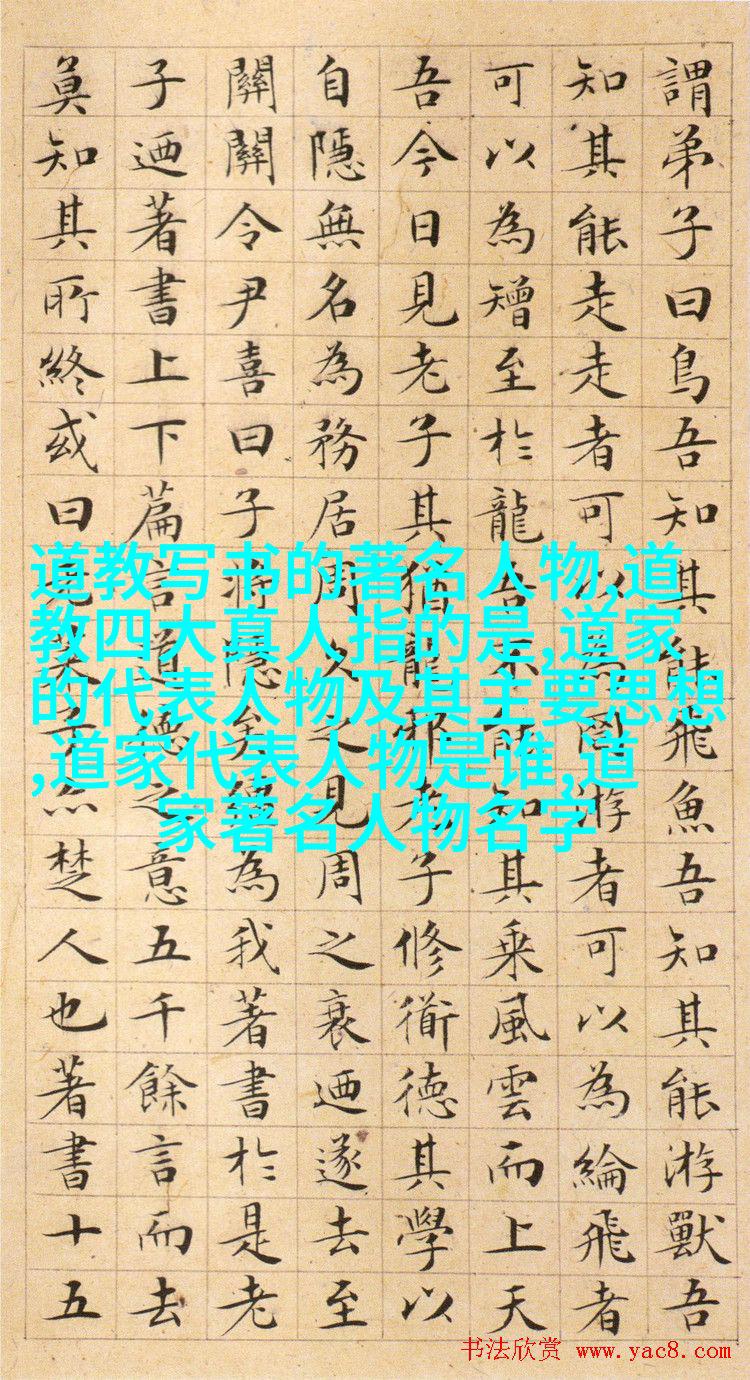 謂弟子曰鳥吾知其能飛魚吾知其能游獸吾
知其能走走者可以為罔游者可以為綸飛者
可以為矰至於龍吾不能知其乘風雲而上天
吾今日見老子其猶龍邪老子修衜德其學以
自隱無名為務居周久之見周之衰迺遂去至
關關令尹喜曰子將隱矣彊為我著書於是老
子迺著書上下篇言道德之意五千餘言而去
莫知其所終或曰老萊子亦楚人也著書十五
道教写书的著名人物,道
教四大真人指的是,道家
的代表人物及其主要思想
,道家代表人物是谁,道
家著名人物名字
书法欣赏 www.yac8.com